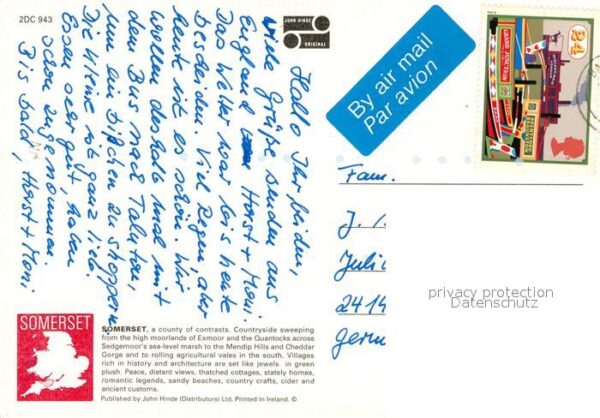 2DC 943
JOHN HINDE
ORIGINAL
By air mail
Par avion
24
GRAND JUNCTION
Hallo Ihr beiden,
viele Grüße senden aus
England Horst + Moni.
Das Wetter war bis heute
bescheiden. Viel Regen, aber
heute ist es schön. Wir
wollen deshalb mal mit
dem Bus nach Taunton,
um ein bißchen zu shoppen.
Die Kleine ist ganz lieb.
Essen sehr gut, haben
schon zugenommen.
Bis bald, Horst + Moni
Fam.
J.
Julic
2419
Germ
privacy protection
Datenschutz
SOMERSET
SOMERSET, a county of contrasts. Countryside sweeping
from the high moorlands of Exmoor and the Quantocks across
Sedgemoor's sea-level marsh to the Mendip Hills and Cheddar
Gorge and to rolling agricultural vales in the south. Villages
rich in history and architecture are set like jewels in green
plush. Peace, distant views, thatched cottages, stately homes,
romantic legends, sandy beaches, country crafts, cider and
ancient customs.
Published by John Hinde (Distributors) Ltd. Printed in Ireland. ©